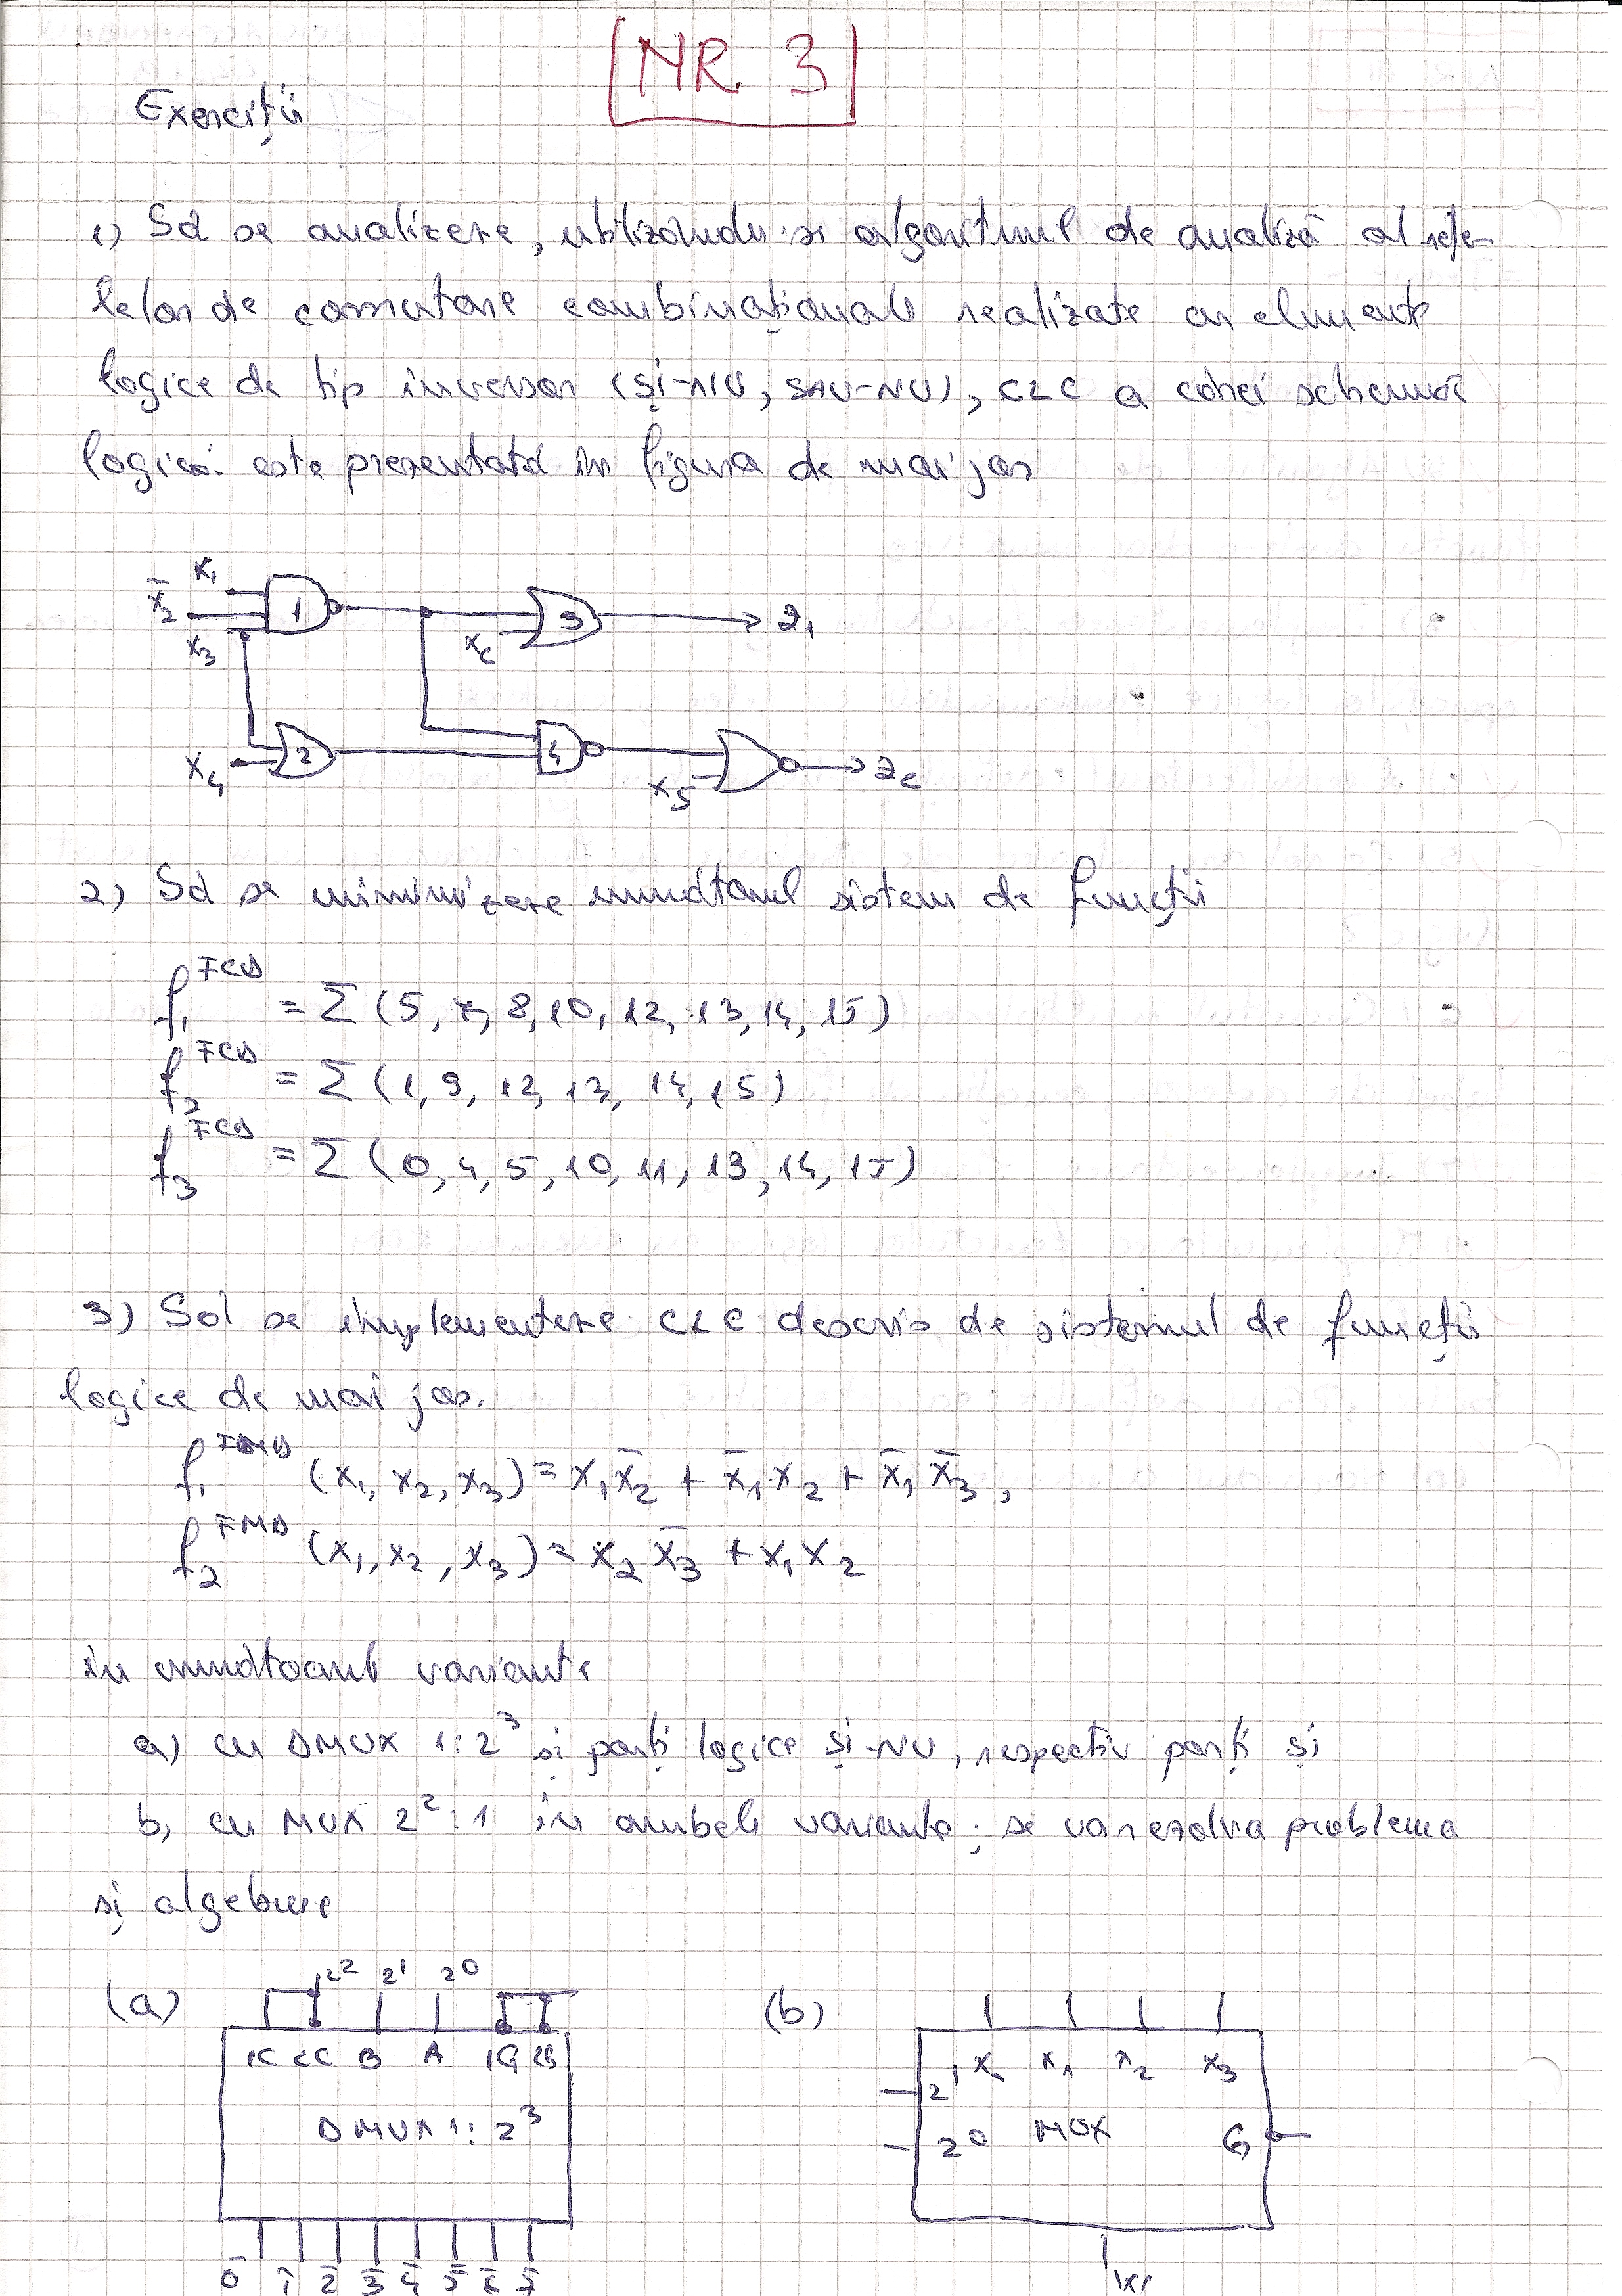 NR. 3
Exerciții
1) Să se analizeze, utilizându-se algoritmul de analiză al rețe-
lelor de comutare combinaționale realizate cu elemente
logice de tip inversor (ȘI-NU, SAU-NU), CLC a cărei schemă
logică este prezentată în figura de mai jos
x1
x̄2
x3
1
3
x6
z1
x4
2
4
x5
z2
2) Să se minimizeze următorul sistem de funcții
f1^FCD = Σ (5, 7, 8, 10, 12, 13, 14, 15)
f2^FCD = Σ (1, 9, 12, 13, 14, 15)
f3^FCD = Σ (0, 4, 5, 10, 11, 13, 14, 15)
3) Să se implementeze CLC descris de sistemul de funcții
logice de mai jos.
f1^FMD (x1, x2, x3) = x1x̄2 + x̄1x2 + x̄1x̄3,
f2^FMD (x1, x2, x3) = x2x̄3 + x1x2
în variante
a) cu DMUX 1:2³ și porți logice ȘI-NU, respectiv porți ȘI
b) cu MUX 2²:1 în ambele variante; se va rezolva problema
și algebric
(a) 2² 2¹ 2⁰
1C 2C B A 1G 2G
DMUX 1:2³
0̄ 1̄ 2̄ 3̄ 4̄ 5̄ 6̄ 7̄
(b)
x0 x1 x2 x3
2¹
2⁰ MUX G